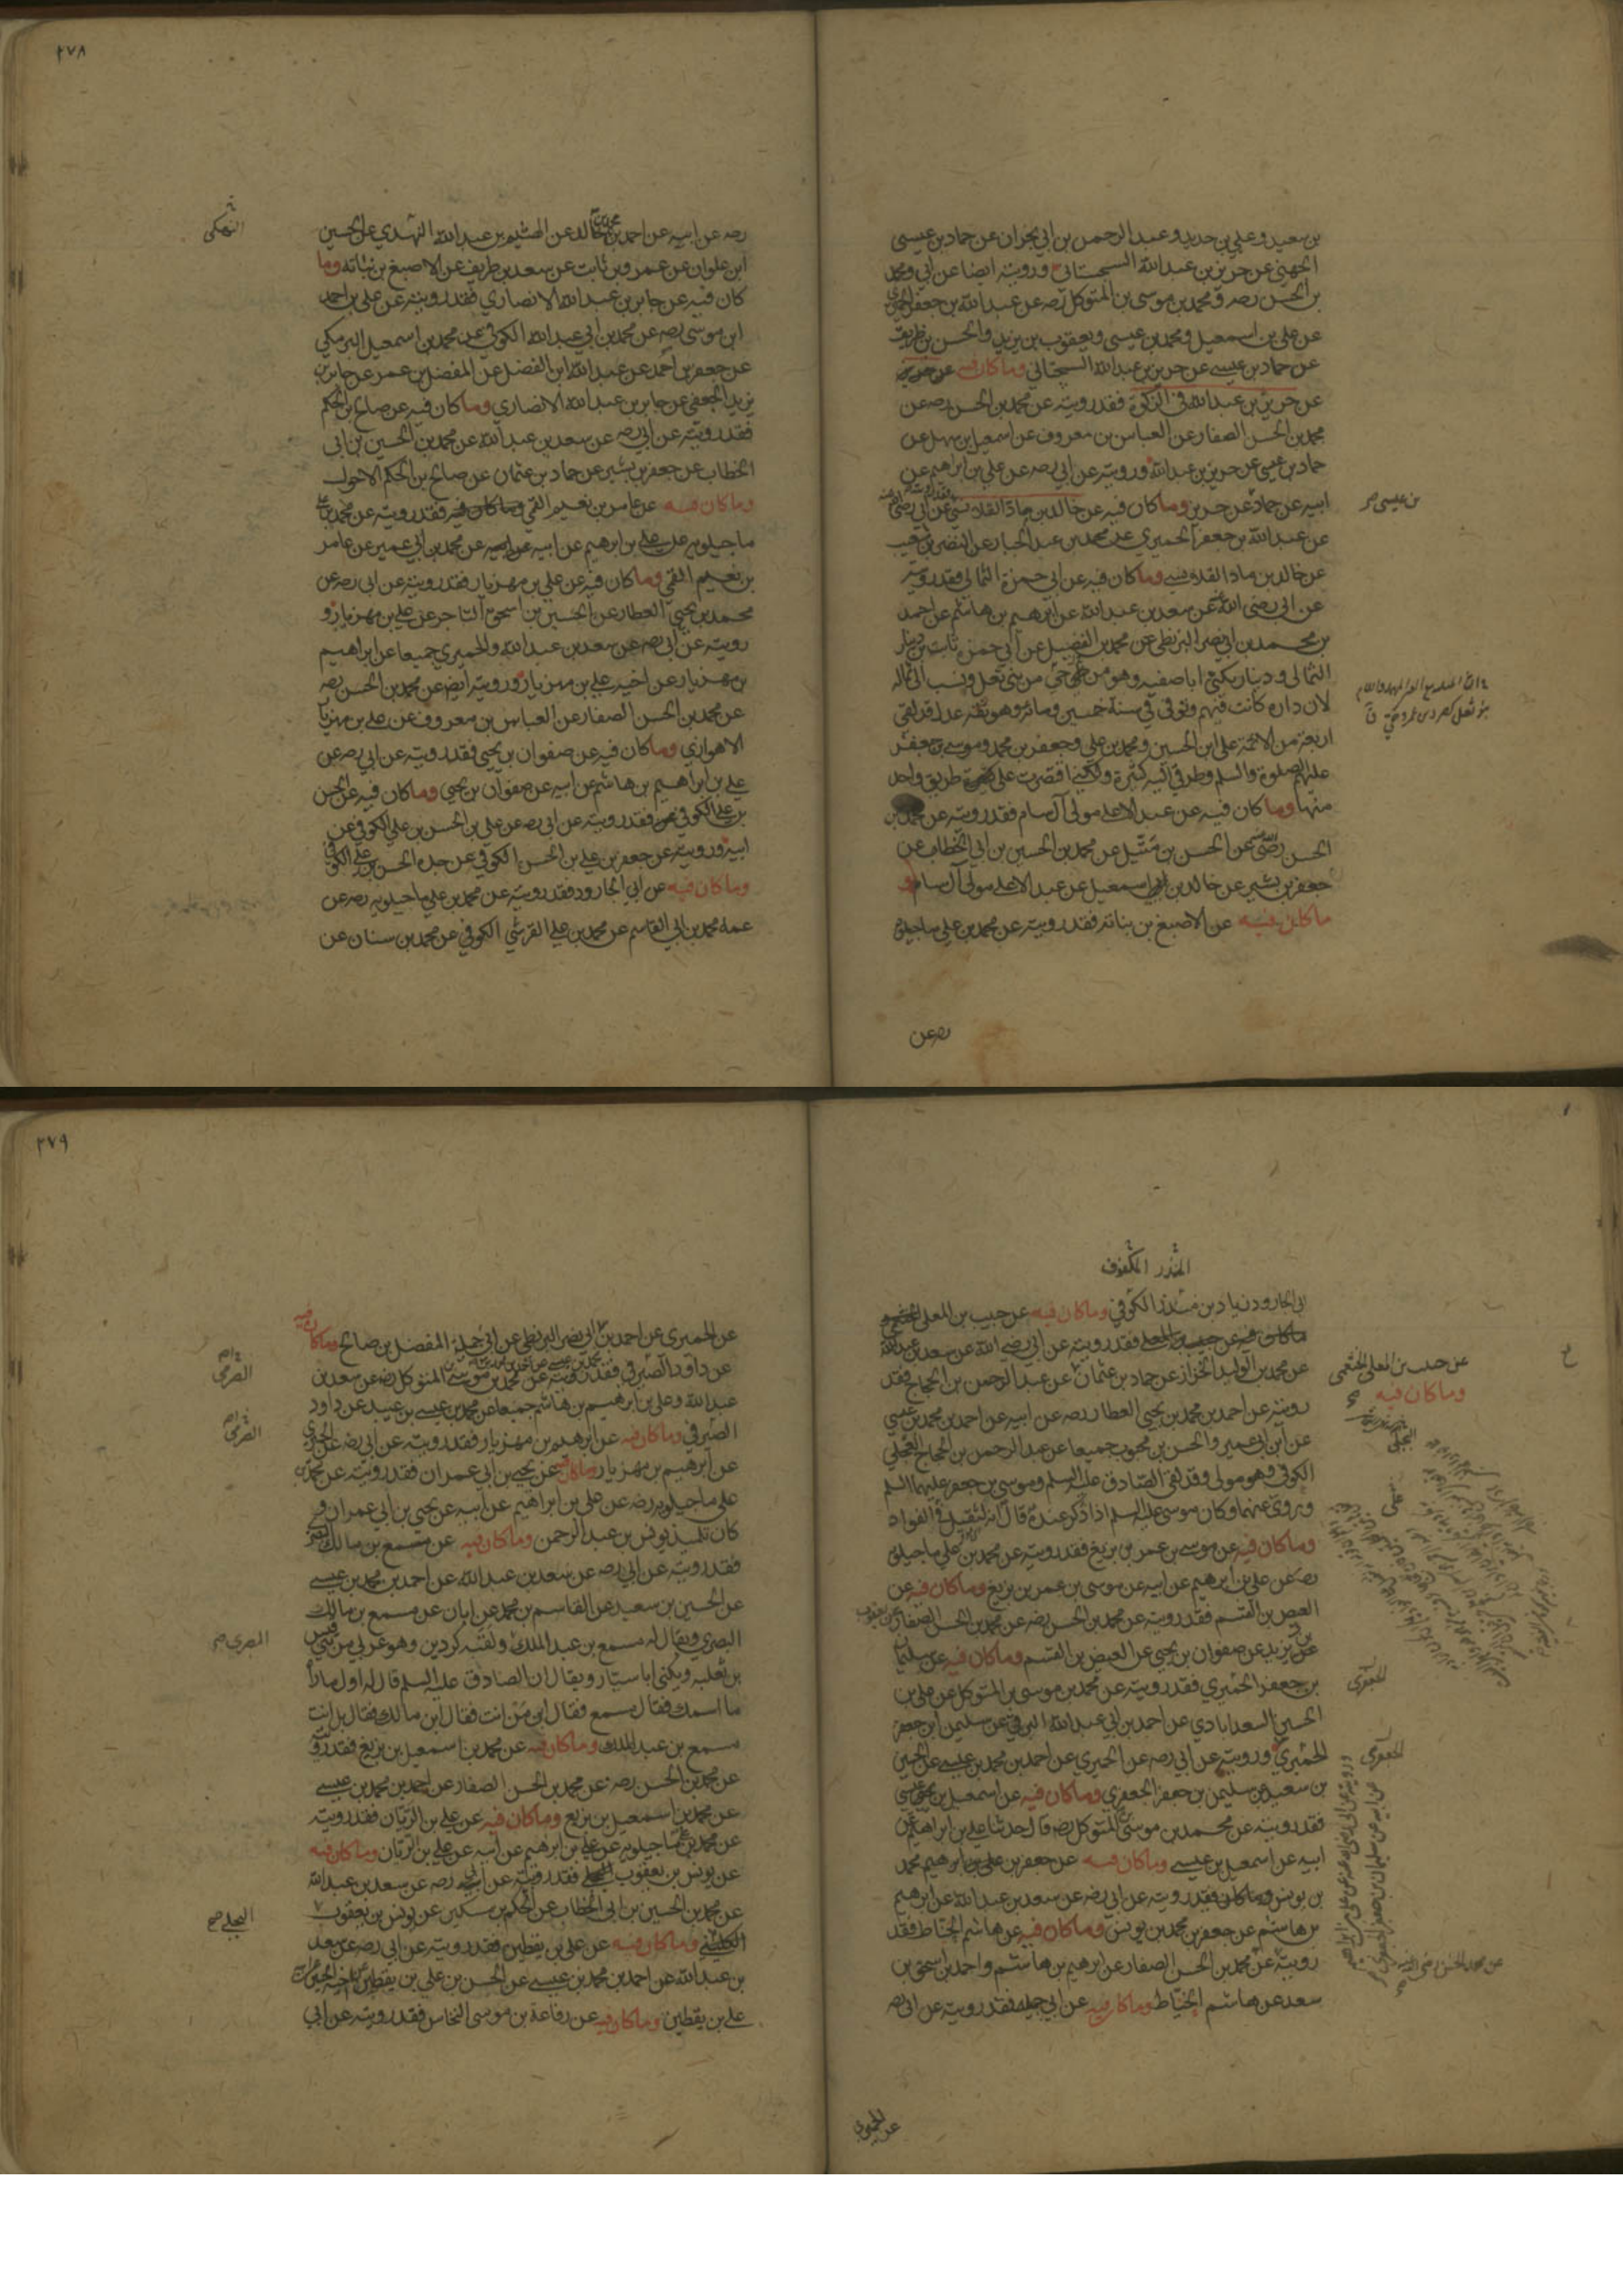 بن سعيد وعلي بن حديد وعبد الرحمن بن ابي نجران عن حماد بن عيسى
الجهني عن حريز بن عبدالله السجستاني ورويته ايضا عن ابي ومحمد
بن الحسن رضه ومحمد بن موسى بن المتوكل رضه عن عبدالله بن جعفر الحميري
عن علي بن اسمعيل ومحمد بن عيسى ويعقوب بن يزيد والحسن بن ظريف
عن حماد بن عيسى عن حريز بن عبدالله السجستاني وما كان فيه
عن حريز بن عبدالله في الزكوة فقد رويته عن محمد بن الحسن رضه عن
محمد بن الحسن الصفار عن العباس بن معروف عن اسمعيل بن سهل عن
حماد بن عيسى عن حريز بن عبدالله ورويته عن ابي رضه عن علي بن ابراهيم عن
ابيه عن حماد عن حريز وما كان فيه عن خالد بن ماد القلانسي
من عيسى صح
عن عبدالله بن جعفر الحميري عن محمد بن عبد الجبار عن النضر بن شعيب
عن خالد بن ماد القلانسي وما كان فيه عن ابي حمزة الثمالي فقد رويته
عن ابي رضي الله عنه عن سعد بن عبدالله عن ابرهيم بن هاشم عن احمد
بن محمد بن ابي نصر البزنطي عن محمد بن الفضيل عن ابي حمزة ثابت بن دينار
الثمالي ودينار يكنى ابا صفيه وهو من حي من بني ثعل ونسب الى ثماله
لان داره كانت فيهم وتوفي في سنة خمسين ومائة وهو ثقة عدل قد لقي
اربعة من الائمة علي ابن الحسين ومحمد بن علي وجعفر بن محمد وموسى بن جعفر
عليهم الصلوة والسلم وطرقي اليه كثيرة ولكني اقتصرت على طريق واحد
منها وما كان فيه عن عبد الاعلى مولى آل سام فقد رويته عن محمد بن
الحسن رضه عن الحسن بن متيل عن محمد بن الحسين بن ابي الخطاب عن
جعفر بن بشير عن خالد بن ابي اسمعيل عن عبد الاعلى مولى آل سام و
ما كان فيه عن الاصبغ بن نباته فقد رويته عن محمد بن علي ماجيلويه
رضه عن
٢٧٨
رضه عن ابيه عن احمد بن محمد بن خالد عن الهيثم بن عبدالله النهدي عن الحسين
النهكي
ابن علوان عن عمرو بن ثابت عن سعد بن طريف عن الاصبغ بن نباته وما
كان فيه عن جابر بن عبدالله الانصاري فقد رويته عن علي بن احمد
ابن موسى رضه عن محمد بن ابي عبدالله الكوفي عن محمد بن اسمعيل البرمكي
عن جعفر بن احمد عن عبدالله ابن الفضل عن المفضل بن عمر عن جابر بن
يزيد الجعفي عن جابر بن عبدالله الانصاري وما كان فيه عن صالح بن الحكم
فقد رويته عن ابي رضه عن سعد بن عبدالله عن محمد بن الحسين بن ابي
الخطاب عن جعفر بن بشير عن حماد بن عثمان عن صالح بن الحكم الاحول
وما كان فيه عن عامر بن نعيم القمي وما كان فيه فقد رويته عن محمد بن علي
ماجيلويه عن علي بن ابرهيم عن ابيه عن محمد بن ابي عمير عن عامر
بن نعيم القمي وما كان فيه عن علي بن مهزيار فقد رويته عن ابي رضه عن
محمد بن يحيى العطار عن الحسين بن اسحق التاجر عن علي بن مهزيار و
رويته عن ابي رضه عن سعد بن عبدالله والحميري جميعا عن ابراهيم
بن مهزيار عن اخيه علي بن مهزيار ورويته ايضا عن محمد بن الحسن رضه
عن محمد بن الحسن الصفار عن العباس بن معروف عن علي بن مهزيار
الاهوازي وما كان فيه عن صفوان بن يحيى فقد رويته عن ابي رضه عن
علي بن ابراهيم بن هاشم عن ابيه عن صفوان بن يحيى وما كان فيه عن الحسن
بن علي الكوفي فقد رويته عن ابي رضه عن علي بن الحسن بن علي الكوفي عن
ابيه ورويته عن جعفر بن علي بن الحسن الكوفي عن جده الحسن بن علي الكوفي
وما كان فيه عن ابي الجارود فقد رويته عن محمد بن علي ماجيلويه رضه عن
عمه محمد بن ابي القاسم عن محمد بن علي القرشي الكوفي عن محمد بن سنان عن
المنذر المكفوف
ابي الجارود زياد بن منذر الكوفي وما كان فيه عن حبيب بن المعلى الخثعمي
فقد رويته عن ابي رضي الله عن سعد بن عبدالله
عن محمد بن الوليد الخزاز عن حماد بن عثمان عن عبد الرحمن بن الحجاج فقد
عن حبيب بن المعلى الخثعمي
وما كان فيه
رويته عن احمد بن محمد بن يحيى العطار رضه عن ابيه عن احمد بن محمد بن عيسى
عن ابن ابي عمير والحسن بن محبوب جميعا عن عبد الرحمن بن الحجاج البجلي
البجلي
الكوفي وهو مولى وقد لقي الصادق عليه السلم وموسى بن جعفر عليهما السلم
وروى عنهما وكان موسى عليه السلم اذا ذكر عنده قال انه لثقيل في الفواد
وما كان فيه عن موسى بن عمر بن بزيع فقد رويته عن محمد بن علي ماجيلويه
رضه عن علي بن ابرهيم عن ابيه عن موسى بن عمر بن بزيع وما كان فيه عن
العيص بن القسم فقد رويته عن محمد بن الحسن رضه عن محمد بن الحسن الصفار عن يعقوب
بن يزيد عن صفوان بن يحيى عن العيص بن القسم وما كان فيه عن سليمان
بن جعفر الحميري فقد رويته عن محمد بن موسى بن المتوكل عن علي بن
الجعفري
الحسين السعدابادي عن احمد بن ابي عبدالله البرقي عن سليمن ابن جعفر
الحميري ورويته عن ابي رضه عن الحميري عن احمد بن محمد بن عيسى عن الحسين
الجعفري
بن سعيد عن سليمن بن جعفر الجعفري وما كان فيه عن اسمعيل بن عيسى
فقد رويته عن محمد بن موسى المتوكل رضه قال حدثنا علي بن ابراهيم عن
ابيه عن اسمعيل بن عيسى وما كان فيه عن جعفر بن محمد
بن يونس فقد رويته عن ابي رضه عن سعد بن عبدالله عن ابرهيم
بن هاشم عن جعفر بن محمد بن يونس وما كان فيه عن هاشم الحناط فقد
رويته عن محمد بن الحسن الصفار عن ابرهيم بن هاشم واحمد بن اسحق بن
عن محمد بن الحسن رضي الله عنه
سعد عن هاشم الحناط وما كان فيه عن ابي جميله فقد رويته عن ابي رضه
عن الحميري
٢٧٩
عن الحميري عن احمد بن ابي نصر البزنطي عن ابي جميلة المفضل بن صالح وما كان فيه
عن داود الصرمي فقد رويته عن محمد بن موسى المتوكل رضه عن سعد بن
الصرمي
عبدالله وعلي بن ابرهيم بن هاشم جميعا عن محمد بن عيسى بن عبيد عن داود
الصيرفي وما كان فيه عن ابرهيم بن مهزيار فقد رويته عن ابي رضه عن الحميري
الصرمي
عن ابرهيم بن مهزيار وما كان فيه عن يحيى بن ابي عمران فقد رويته عن محمد بن
علي ماجيلويه رضه عن علي بن ابراهيم عن ابيه عن يحيى بن ابي عمران و
كان تلميذ يونس بن عبد الرحمن وما كان فيه عن مسمع بن مالك
فقد رويته عن ابي رضه عن سعد بن عبدالله عن احمد بن محمد بن عيسى
عن الحسين بن سعيد عن القاسم بن محمد عن ابان عن مسمع بن مالك
البصري ويقال له مسمع بن عبد الملك ولقبه كردين وهو عربي من بني قيس
البصري صح
بن ثعلبه ويكنى ابا سيار ويقال ان الصادق عليه السلم قال له اول ما رآه
ما اسمك فقال مسمع فقال ابن من انت فقال ابن مالك فقال بل انت
مسمع بن عبد الملك وما كان فيه عن محمد بن اسمعيل بن بزيع فقد رويته
عن محمد بن الحسن رضه عن محمد بن الحسن الصفار عن احمد بن محمد بن عيسى
عن محمد بن اسمعيل بن بزيع وما كان فيه عن علي بن الريان فقد رويته
عن محمد بن علي ماجيلويه عن علي بن ابرهيم عن ابيه عن علي بن الريان وما كان فيه
عن يونس بن يعقوب فقد رويته عن ابي رضه عن سعد بن عبدالله
عن محمد بن الحسين بن ابي الخطاب عن الحكم بن مسكين عن يونس بن يعقوب
البجلي صح
وما كان فيه عن علي بن يقطين فقد رويته عن ابي رضه عن سعد
بن عبدالله عن احمد بن محمد بن عيسى عن الحسن بن علي بن يقطين عن اخيه الحسين عن ابيه
علي بن يقطين وما كان فيه عن رفاعة بن موسى النخاس فقد رويته عن ابي